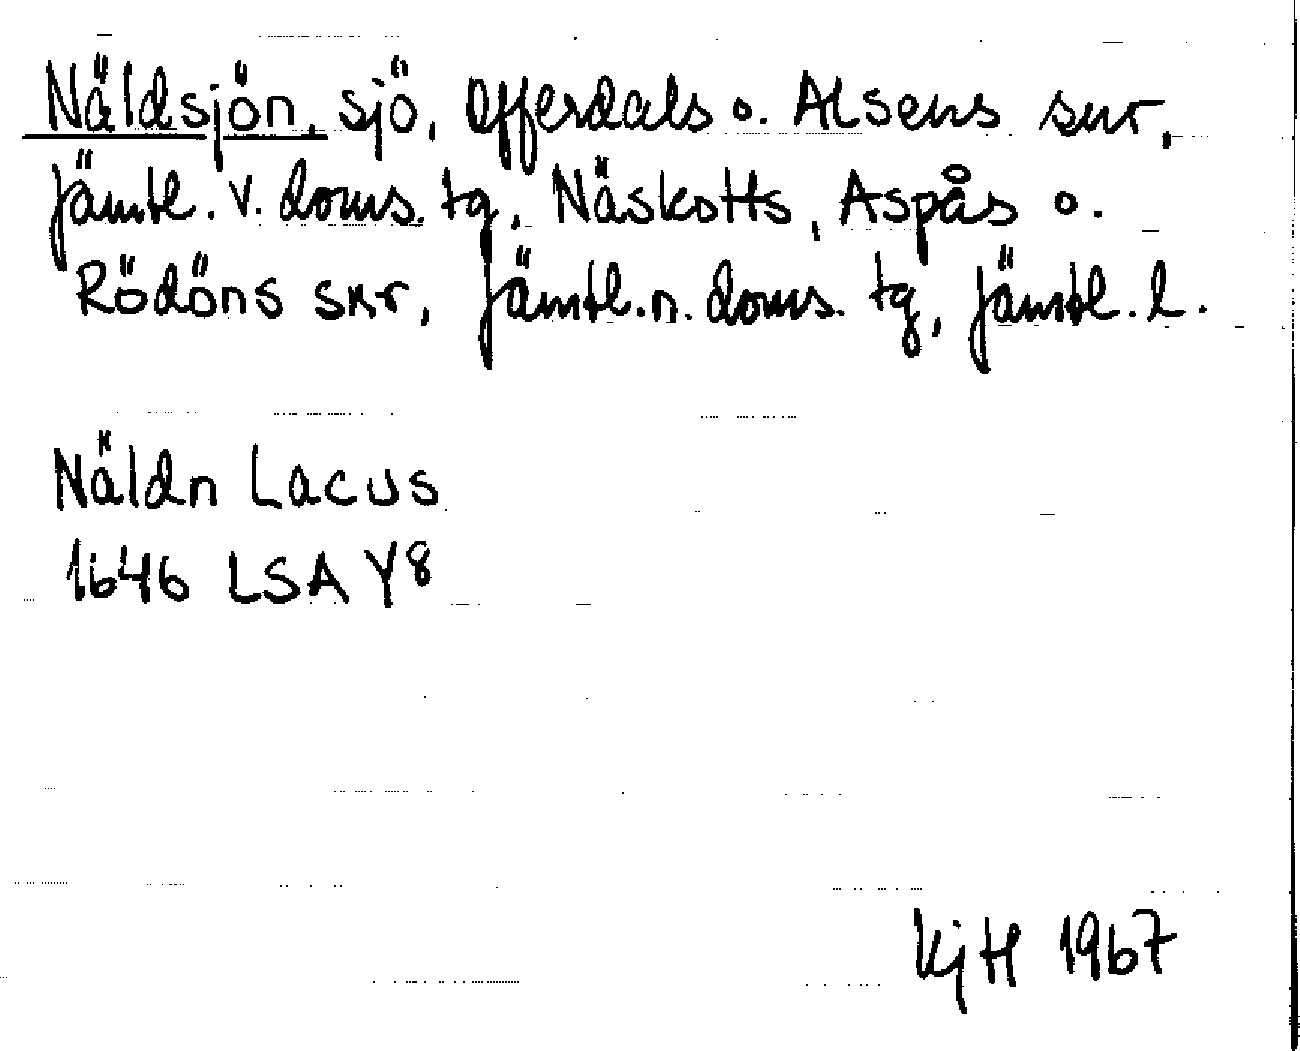 Näldsjön, sjö, Offerdals o. Alsens snr,
Jämtl. v. doms. tg, Näskotts, Aspås o.
Rödöns snr, Jämtl. n. doms. tg, Jämtl. l.
Näldn Lacus
1646 LSA Y8
KjH 1967